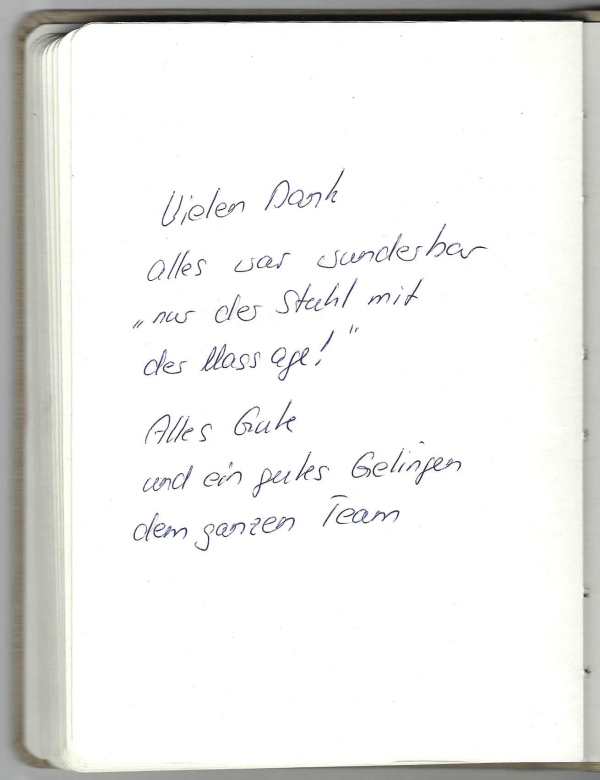 Vielen Dank
alles war wunderbar
„nur der Stuhl mit
der Massage!“
Alles Gute
und ein gutes Gelingen
dem ganzen Team